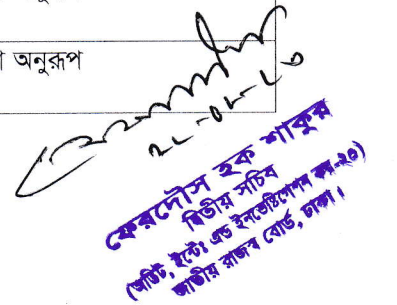 অনুরূপ
ফেরদৌস হক শাকুর
দ্বিতীয় সচিব
(অডিট, ইন্টেঃ এন্ড ইনভেস্টিগেশন
জাতীয় রাজস্ব বোর্ড, ঢাকা।